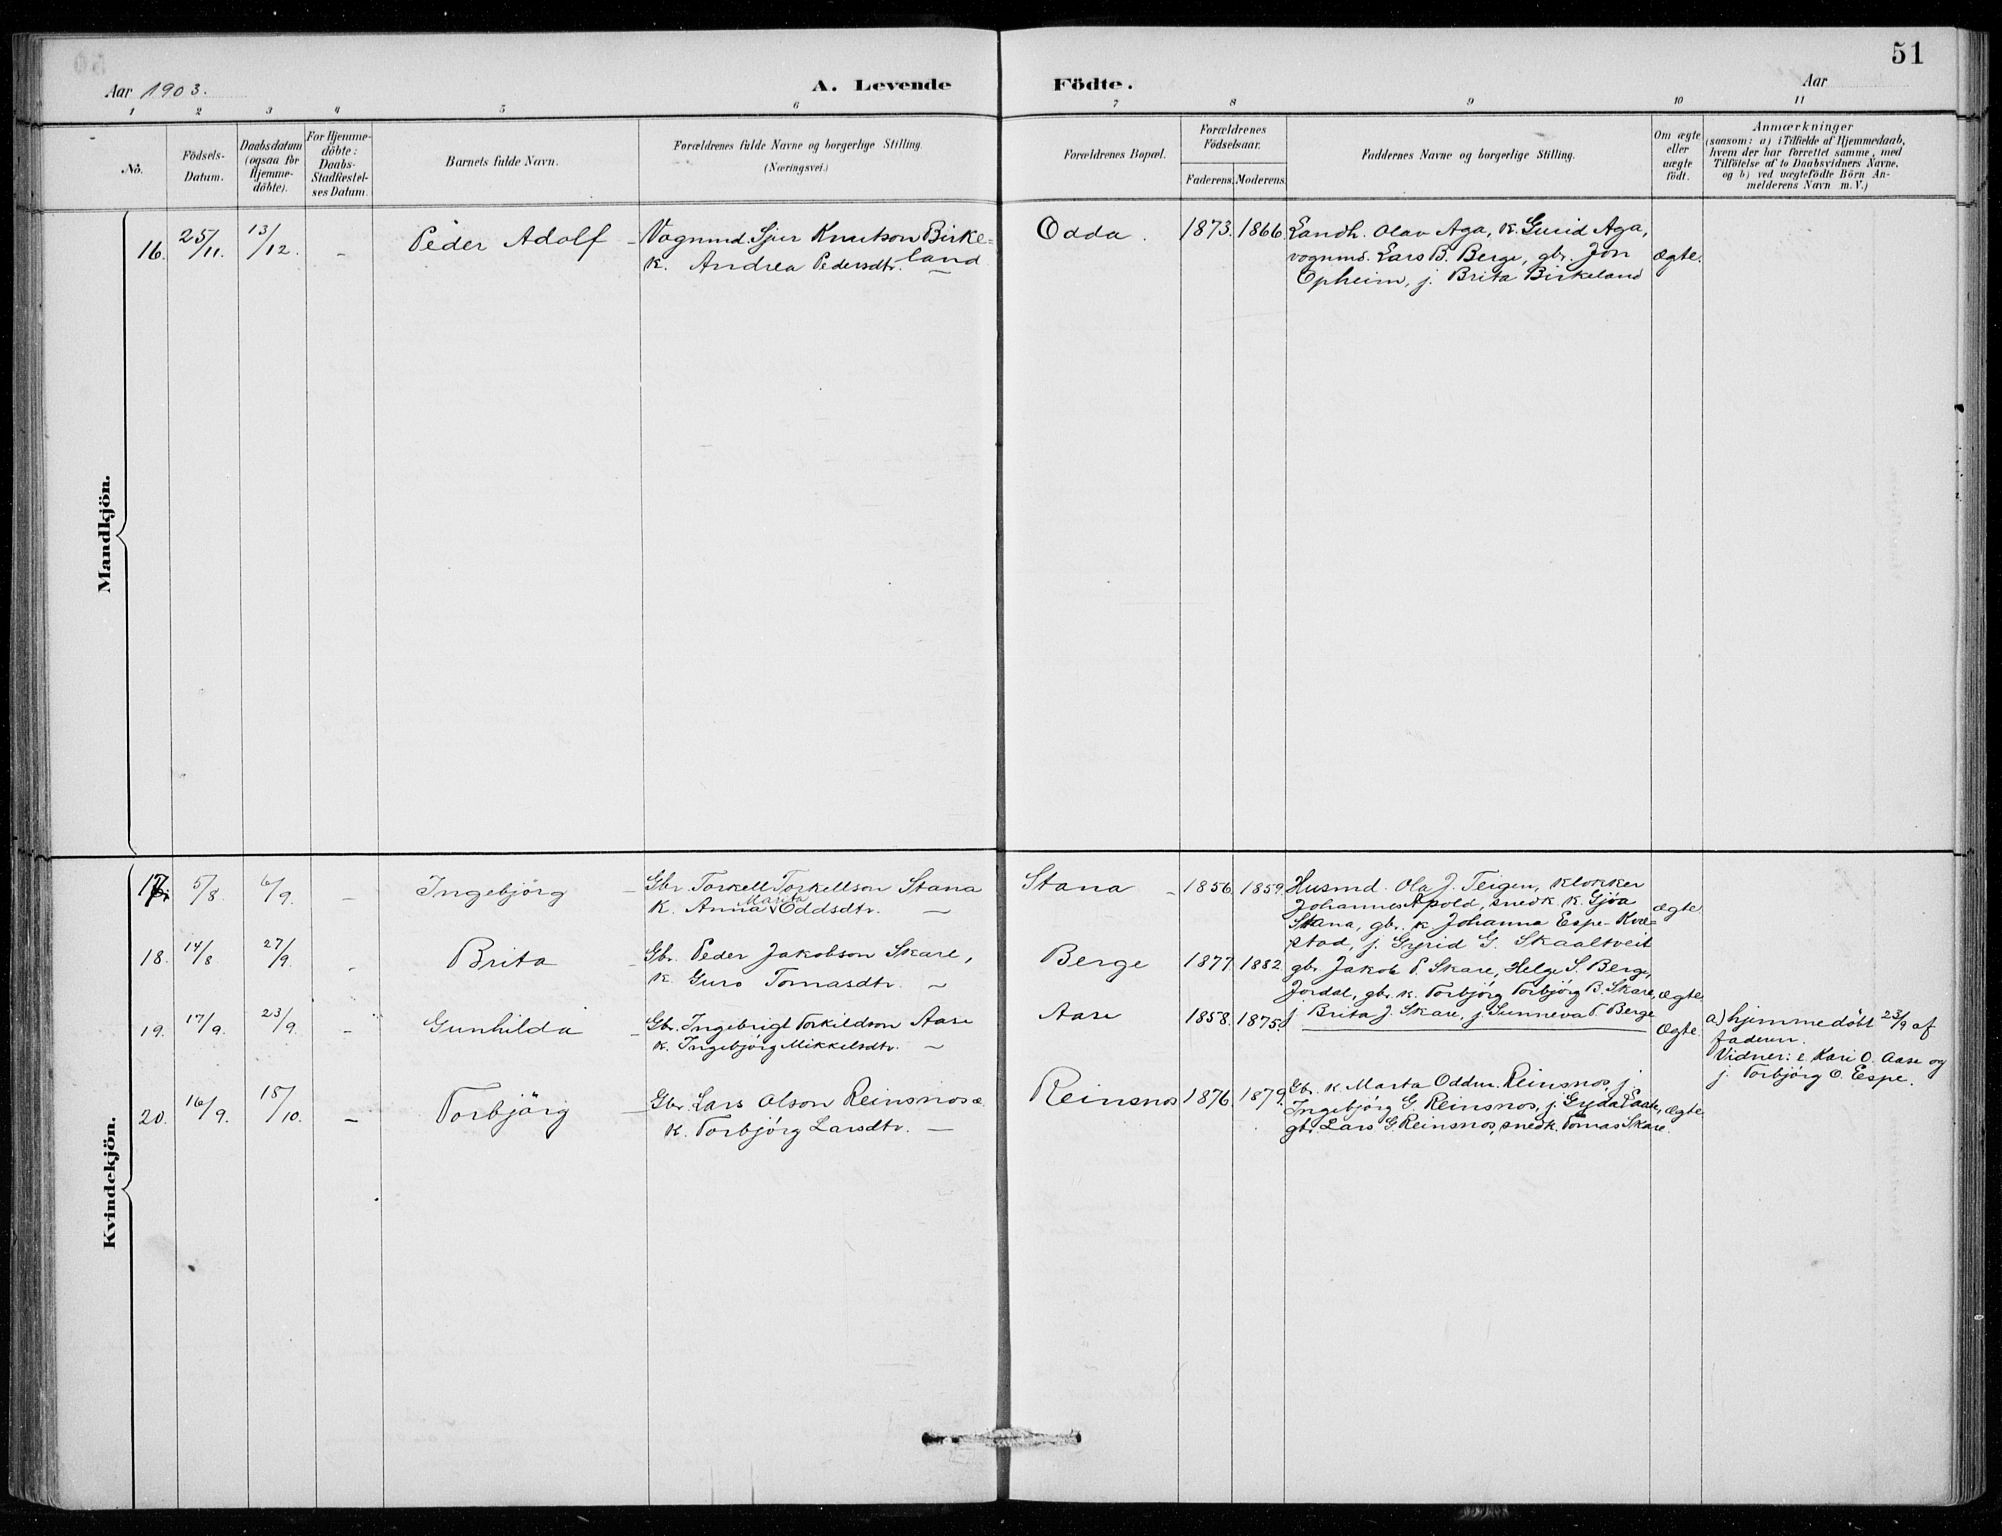 51
Aar 1903.
A. Levende Födte.
Aar
1 2 3 4 5 6 7 8 9 10 11
No.
Födsels-Datum.
Daabsdatum (ogsaa for Hjemme-döbte).
For Hjemme-döbte: Daabs-Stadfestel-ses Datum.
Barnets fulde Navn.
Forældrenes fulde Navne og borgerlige Stilling. (Næringsvei.)
Forældrenes Bopæl.
Forældrenes Födselsaar.
Faderens. Moderens.
Faddernes Navne og borgerlige Stilling.
Om ægte eller uægte födt.
Anmærkninger
(saasom: a) i Tilfælde af Hjemmedaab,
hvem der har forrettet samme, med
Tilföielse af to Daabsvidners Navne,
og b) ved uægtefödte Börn An-
melderens Navn m. V.)
Mandkjön.
16. 25/11. 13/12. - Peder Adolf - Vognmd. Sjur Knutson Birke=
land
K. Andrea Pedersdtr. —
Odda. 1873. 1866.
Landh. Olav Aga, k. Gurid Aga,
vognmd. Lars B. Berge, gbr. Jon
Opheim, j. Brita Birkeland
Ægte.
Kvindekjön.
17. 5/8. 6/9. - Ingebjörg - Gbr. Torkell Torkellson Stana
K. Anna Marita Oddsdtr. —
Stana - 1856. 1859.
Husmd. Ola J. Teigen, klokker
Johannes Apold, snedk. k. Gjöa
Stana, gbr. k. Johanna Espe-Kve=
stad, j. Gyrid G. Skaaltveit
Ægte.
18. 14/8 27/9. - Brita - Gbr. Peder Jakobson Skare,
K. Guro Tomasdtr. —
Berge 1877. 1882.
gbr. Jakob P. Skare, Helge S. Berge,
Jordal, gbr. k. Torbjörg Torbjörg B. Skare,
j. Brita J. Skare, j. Sunneva T. Berge
Ægte.
19. 17/9. 23/9. - Gunhilda - Gbr. Ingebrigt Torkildson Aase
K. Ingebjörg Mikkelsdtr. —
Aase 1858. 1875.
Ægte.
a) hjemmedöbt 23/9 af
faderen.
Vidner: e. Kari O. Aase og
j. Torbjörg O. Espe.
20. 16/9. 15/10. - Torbjörg - Gbr. Lars Olson Reinsnos &
K. Torbjörg Larsdtr. —
Reinsnos 1876. 1879.
Gbr. k. Marta Oddm. Reinsnos, j.
Ingebjörg G. Reinsnos, j. Gyda
gbr. Lars G. Reinsnos, snedk. Tomas Skare.
Ægte.